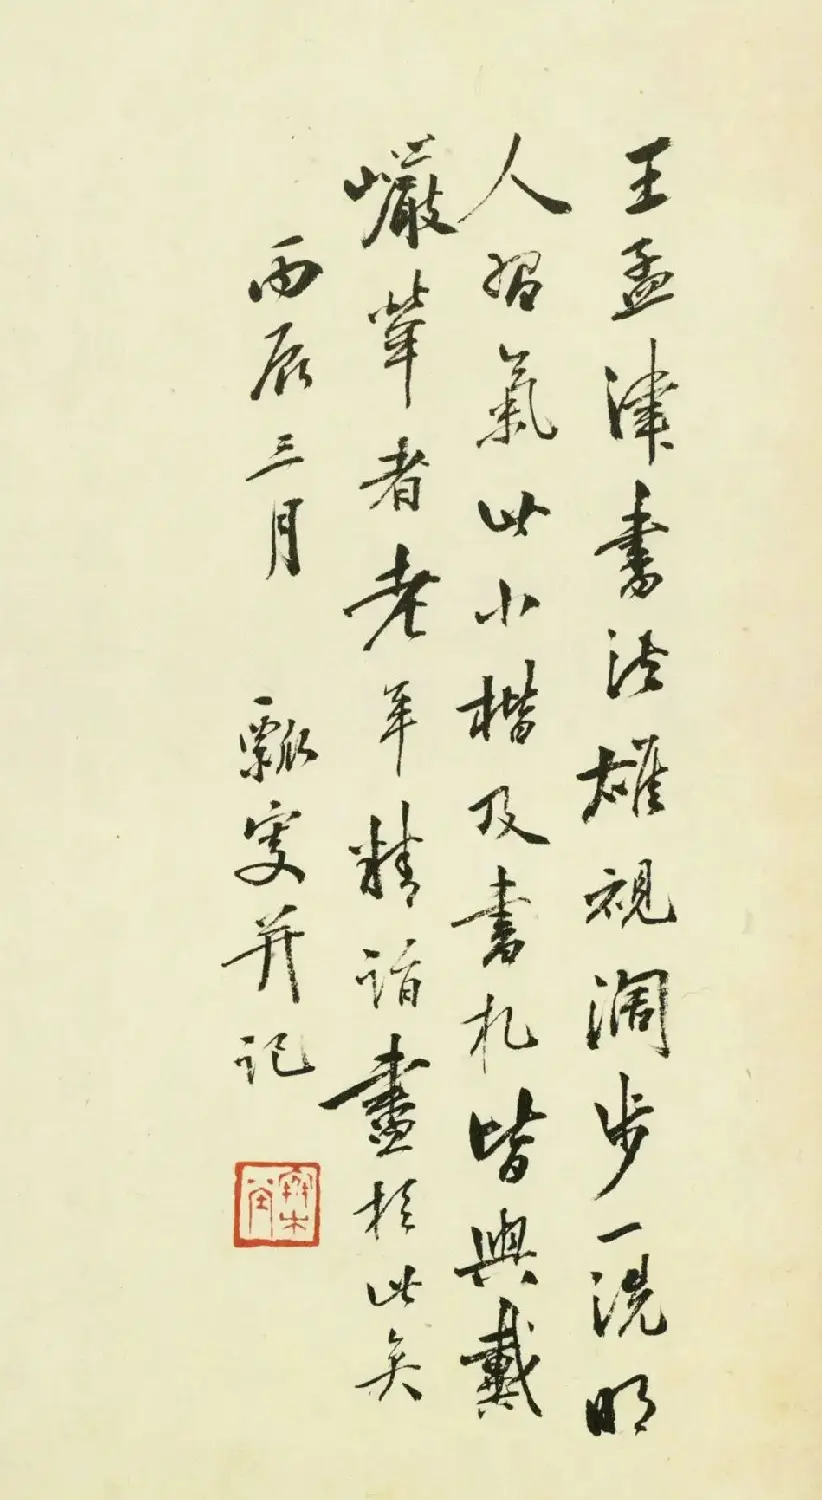 王孟津書法雄視闊步一洗明
人習氣此小楷及書札皆與戴
巖犖者老年精詣盡於此矣
丙辰三月 瓢叟并記